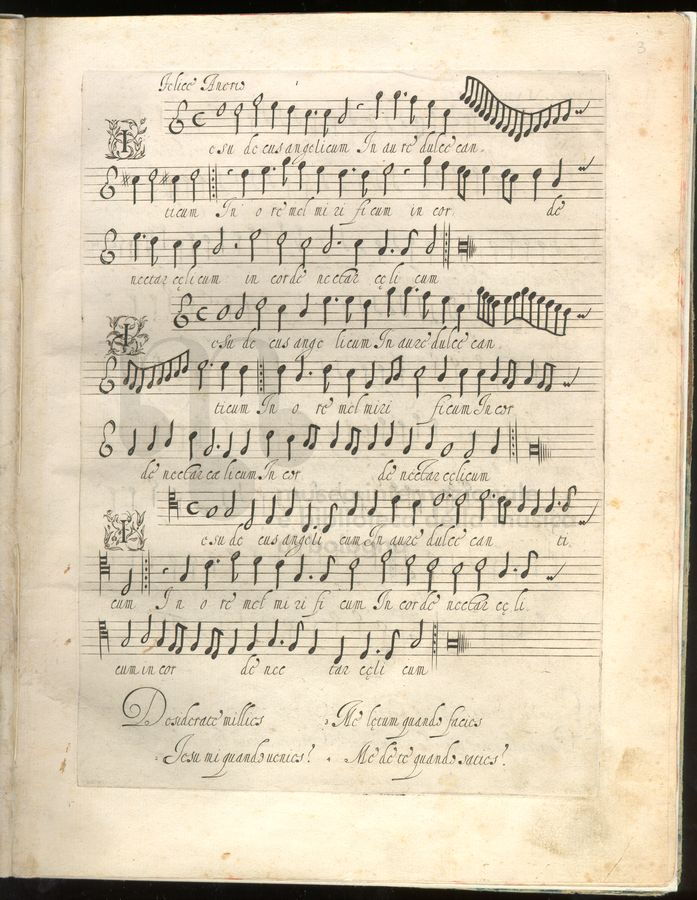 3
Felice Anerio
I esu de cus angelicum In aure dulce can.
ticum In o re mel mi ri ficum in cor de
nectar cęlicum in corde nectar cęli cum
I esu de cus ange licum In aure dulce can.
ticum In o re mel miri ficum In cor
de nectar cæ licum In cor de nectar cęlicum
I esu de cus angeli cum In aure dulce can ti.
cum In o re mel mi ri fi cum In corde nectar cę li.
cum in cor de nec tar cęli cum
Desiderate millies Me lętum quando facies
Iesu mi quando venies? Me de te quando saties?